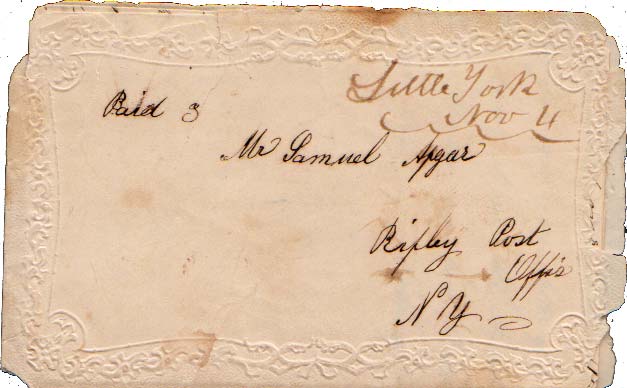 Little York
Nov 4
Paid 3
Mr Samuel Apgar
Ripley Post
Offis
N Y